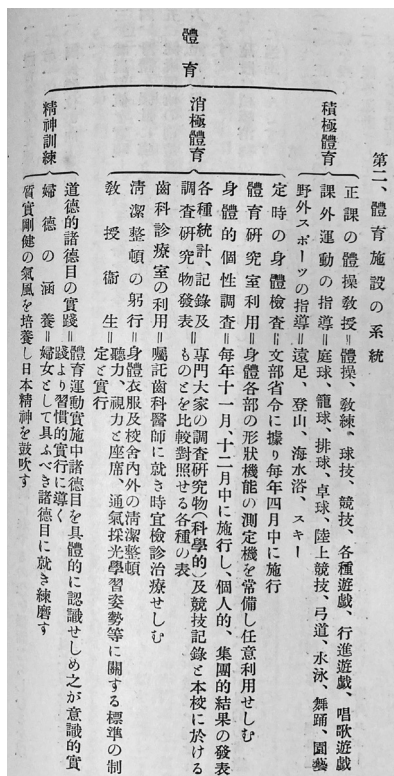 第二、體育施設の系統
體育
積極體育
正課の體操敎授＝體操、敎練、球技、競技、各種遊戲、行進遊戲、唱歌遊戲
課外運動の指導＝庭球、籠球、排球、卓球、陸上競技、弓道、水泳、舞踊、園藝
野外スポーツの指導＝遠足、登山、海水浴、スキー
消極體育
定時の身體檢査＝文部省令に據り每年四月中に施行
體育硏究室利用＝身體各部の形狀機能の測定機を常備し任意利用せしむ
身體的個性調査＝每年十一月、十二月中に施行し、個人的、集團的結果の發表
各種統計、記錄及
調査硏究物發表＝專門大家の調査硏究物(科學的)及競技記錄と本校に於ける
ものとを比較對照せる各種の表
齒科診療室の利用＝囑託齒科醫師に就き時宜檢診治療せしむ
淸潔整頓の躬行＝身體衣服及校舍內外の淸潔整頓
敎授衞生＝聽力、視力と座席、通氣採光學習姿勢等に關する標準の制
定と實行
精神訓練
道德的諸德目の實踐＝體育運動實施中諸德目を具體的に認識せしめ之が意識的實
踐より習慣的實行に導く
婦德の涵養＝婦女として具ふべき諸德目に就き練磨す
質實剛健の氣風を培養し日本精神を鼓吹す